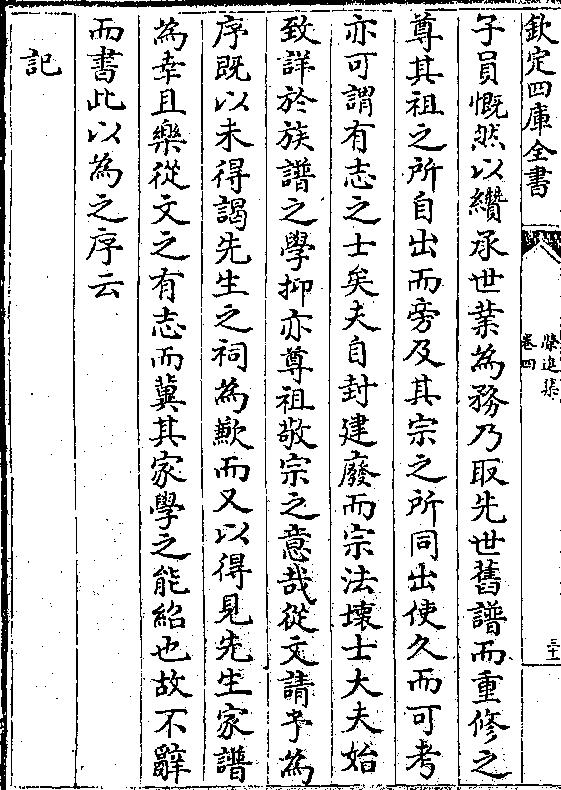 欽定四庫全書
臨進集
卷四
三十一
子員慨然以纘承世業為務乃取先世舊譜而重修之
尊其祖之所自出而旁及其宗之所同出使久而可考
亦可謂有志之士矣夫自封建廢而宗法壊士大夫始
致詳於族譜之學抑亦尊祖敬宗之意哉從文請予為
序既以未得謁先生之祠為歉而又以得見先生家譜
為幸且樂從文之有志而冀其家學之能紹也故不辭
而書此以為之序云
記